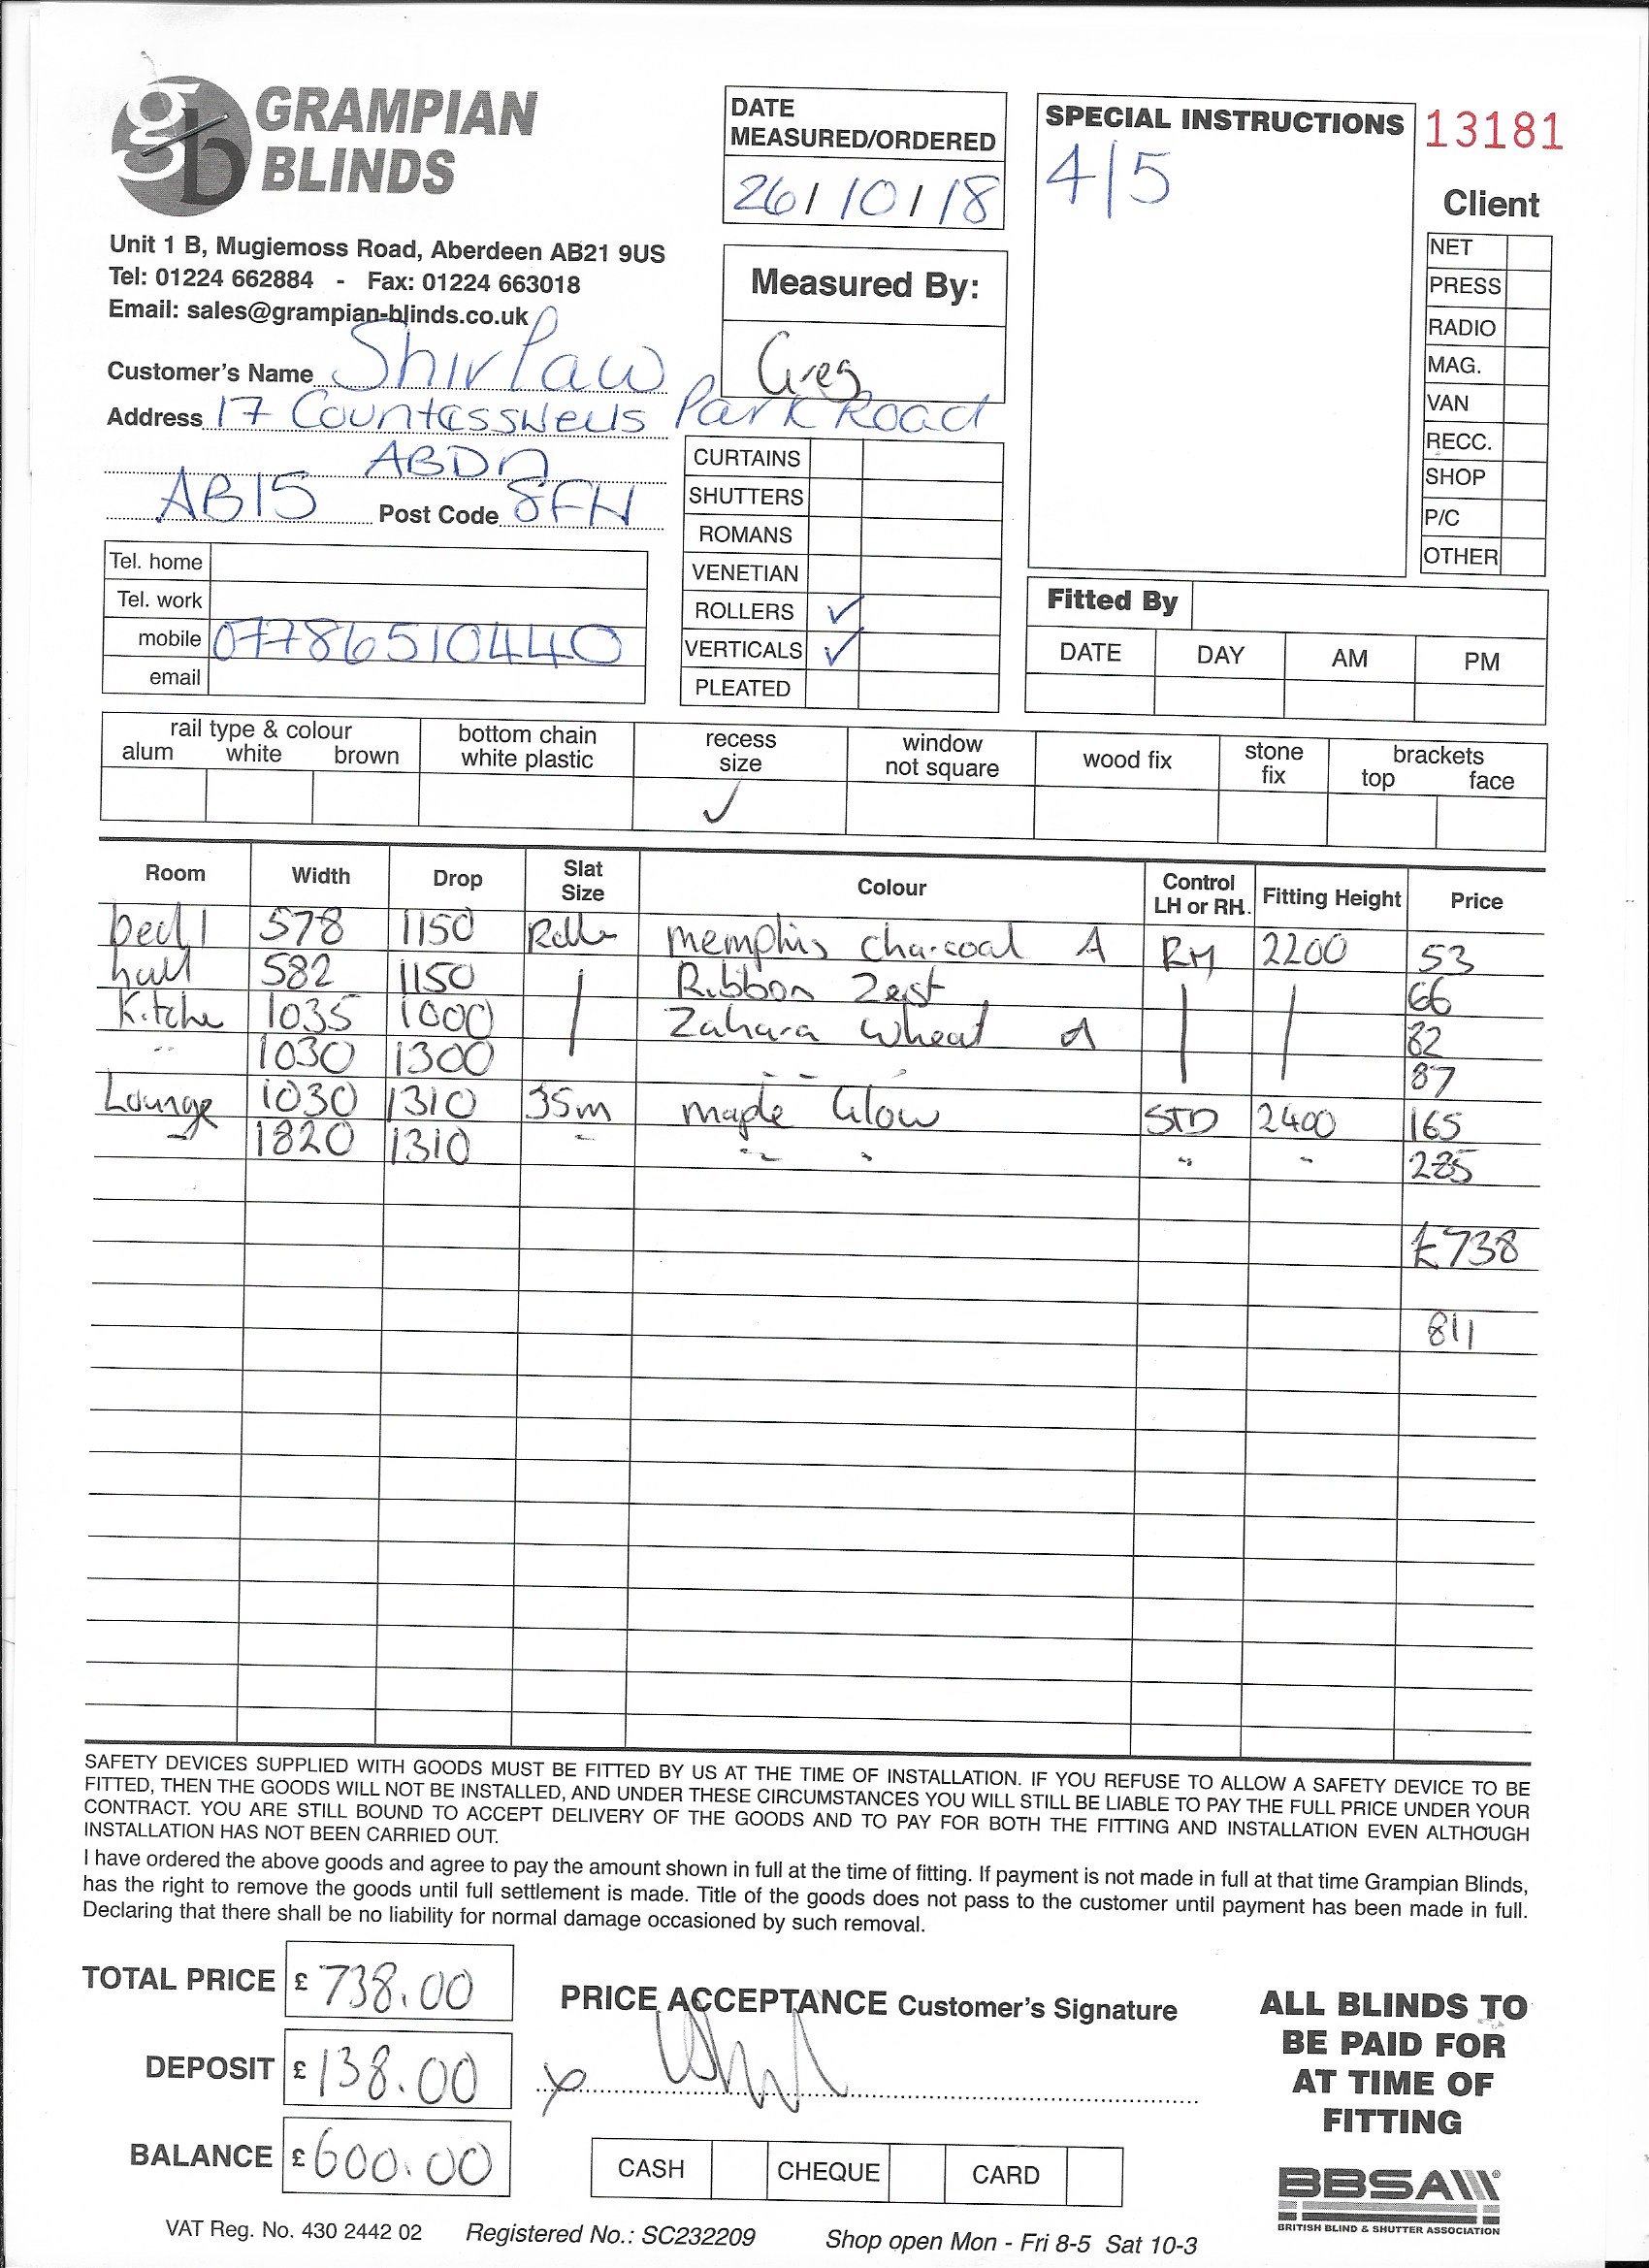 gb GRAMPIAN BLINDS
Unit 1 B, Mugiemoss Road, Aberdeen AB21 9US
Tel: 01224 662884 - Fax: 01224 663018
Email: sales@grampian-blinds.co.uk
DATE MEASURED/ORDERED
26/10/18
Measured By:
Greg
SPECIAL INSTRUCTIONS
4/5
13181
Client
NET
PRESS
RADIO
MAG.
VAN
RECC.
SHOP
P/C
OTHER
Customer's Name Shirlaw
Address 17 Countesswells Park Road
ABDN
AB15 Post Code 8FH
Tel. home
Tel. work
mobile 07786510440
email
CURTAINS
SHUTTERS
ROMANS
VENETIAN
ROLLERS ✓
VERTICALS ✓
PLEATED
Fitted By
DATE DAY AM PM
rail type & colour
alum white brown
bottom chain white plastic
recess size ✓
window not square
wood fix
stone fix
brackets
top face
Room Width Drop Slat Size Colour Control LH or RH. Fitting Height Price
bed 1 578 1150 Roller memphis charcoal A RH 2200 53
hall 582 1150 Ribbon Zest 66
Kitche 1035 1000 Zahara Wheat A 82
" 1030 1300 " " " 87
Lounge 1030 1310 35m maple Glow STD 2400 165
" 1820 1310 " " " " " 285
£738
811
SAFETY DEVICES SUPPLIED WITH GOODS MUST BE FITTED BY US AT THE TIME OF INSTALLATION. IF YOU REFUSE TO ALLOW A SAFETY DEVICE TO BE
FITTED, THEN THE GOODS WILL NOT BE INSTALLED, AND UNDER THESE CIRCUMSTANCES YOU WILL STILL BE LIABLE TO PAY THE FULL PRICE UNDER YOUR
CONTRACT. YOU ARE STILL BOUND TO ACCEPT DELIVERY OF THE GOODS AND TO PAY FOR BOTH THE FITTING AND INSTALLATION EVEN ALTHOUGH
INSTALLATION HAS NOT BEEN CARRIED OUT.
I have ordered the above goods and agree to pay the amount shown in full at the time of fitting. If payment is not made in full at that time Grampian Blinds,
has the right to remove the goods until full settlement is made. Title of the goods does not pass to the customer until payment has been made in full.
Declaring that there shall be no liability for normal damage occasioned by such removal.
TOTAL PRICE £ 738.00
DEPOSIT £ 138.00
BALANCE £ 600.00
PRICE ACCEPTANCE Customer's Signature
x
CASH CHEQUE CARD
ALL BLINDS TO
BE PAID FOR
AT TIME OF
FITTING
BBSA
BRITISH BLIND & SHUTTER ASSOCIATION
VAT Reg. No. 430 2442 02 Registered No.: SC232209 Shop open Mon - Fri 8-5 Sat 10-3